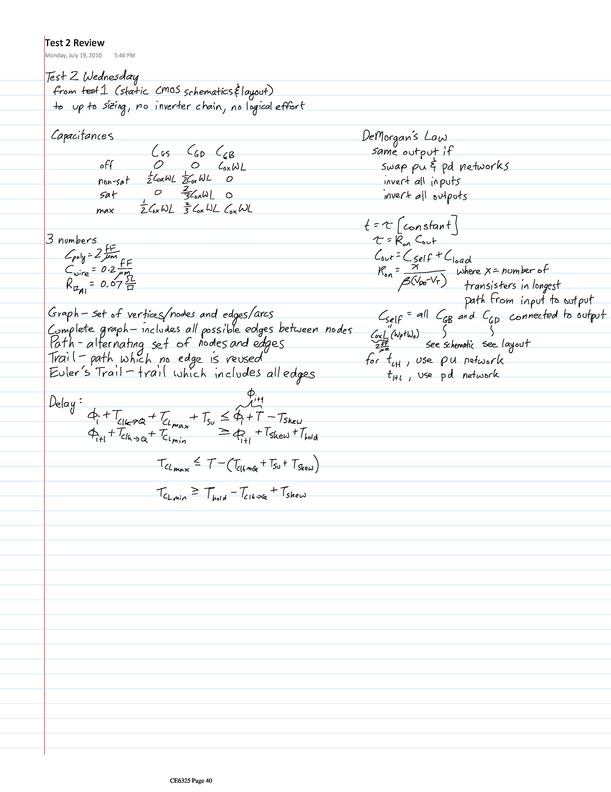 Test 2 Review
Monday, July 19, 2010 5:46 PM
Test 2 Wednesday
from test 1 (static CMOS schematics & layout)
to up to sizing, no inverter chain, no logical effort
Capacitances
C_GS C_GD C_GB
off 0 0 CoxWL
non-sat ½CoxWL ½CoxWL 0
sat 0 ⅔CoxWL 0
max ½CoxWL ⅔CoxWL CoxWL
3 numbers
C_poly = 2 fF/μm
C_wire = 0.2 fF/μm
= 0.07 Ω/□
Graph - set of vertices/nodes and edges/arcs
Complete graph - includes all possible edges between nodes
Path - alternating set of nodes and edges
Trail - path which no edge is reused
Euler's Trail - trail which includes all edges
Delay:
ϕ_i+1
ϕ_i + T_Clk→Q + T_CLmax + T_su ≤ ϕ_i + T - T_skew
ϕ_i+1 + T_Clk→Q + T_CLmin ≥ ϕ_i+1 + T_skew + T_hold
T_CLmax ≤ T - (T_Clk→Q + T_su + T_skew)
T_CLmin ≥ T_hold - T_Clk→Q + T_skew
DeMorgan's Law
same output if
swap pu & pd networks
invert all inputs
invert all outputs
t = τ [constant]
τ = R_on C_out
C_out = C_self + C_load
R_on = x / β(V_DD - V_T) where x = number of
transistors in longest
path from input to output
C_self = all C_GB and C_GD connected to output
CoxL (Wp+Wn)
2 fF/μm see schematic see layout
for t_LH, use pu network
t_HL, use pd network
CE6325 Page 40